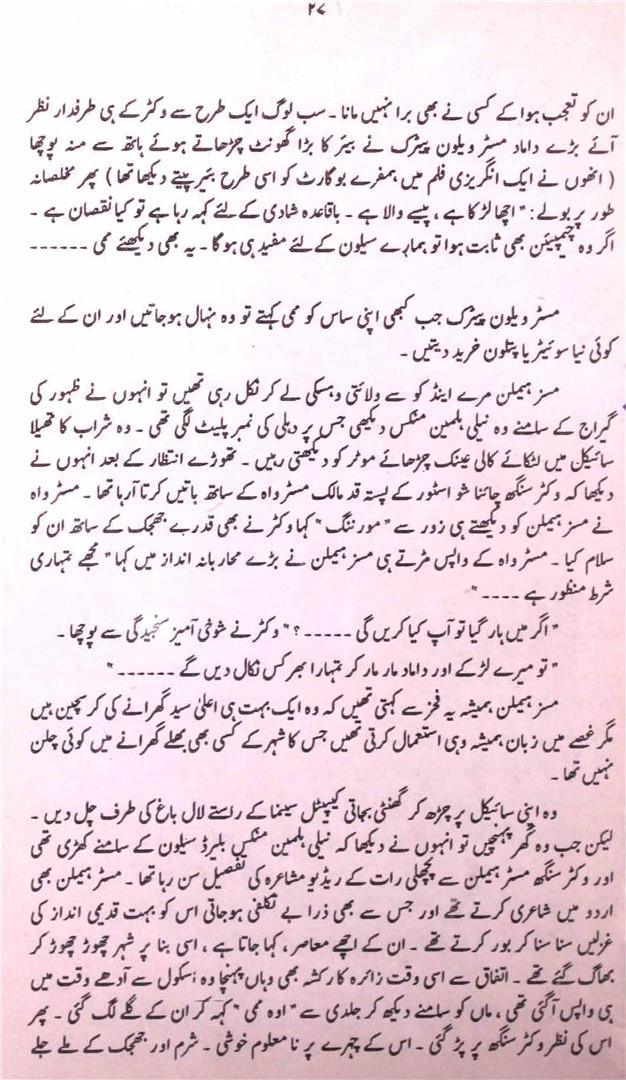 ۲۷
ان کو تعجب ہوا کے کسی نے بھی برا نہیں مانا ۔ سب لوگ ایک طرح سے وکٹر کے ہی طرفدار نظر
آئے بڑے داماد مسٹر ویلون پیٹرک نے بیئر کا بڑا گھونٹ چڑھاتے ہوئے ہاتھ سے منہ پوچھا
( انھوں نے ایک انگریزی فلم میں ہمفرے بوگارٹ کو اسی طرح بئیر پیتے دیکھا تھا ) پھر مخلصانہ
طور پر بولے : " اچھا لڑکا ہے ، پیسے والا ہے ۔ باقاعدہ شادی کے لئے کہہ رہا ہے تو کیا نقصان ہے ۔
اگر وہ چیمپیئن بھی ثابت ہوا تو ہمارے سیلون کے لئے مفید ہی ہو گا ۔ یہ بھی دیکھئے ممی ------
مسٹر ویلون پیٹرک جب کبھی اپنی ساس کو ممی کہتے تو وہ نہال ہو جاتیں اور ان کے لئے
کوئی نیا سوئیٹر یا پتلون خرید دیتیں ۔
مسز ہیملن مرے اینڈ کو سے ولائتی وہسکی لے کر نکل رہی تھیں تو انہوں نے ظہور کی
گیراج کے سامنے وہ نیلی ہلمین منکس دیکھی جس پر دہلی کی نمبر پلیٹ لگی تھی ۔ وہ شراب کا تھیلا
سائیکل میں لٹکائے کالی عینک چڑھائے موٹر کو دیکھتی رہیں ۔ تھوڑے انتظار کے بعد انہوں نے
دیکھا کہ وکٹر سنگھ چائنا شو اسٹور کے پستہ قد مالک مسٹر واہ کے ساتھ باتیں کرتا آ رہا تھا ۔ مسٹر واہ
نے مسز ہیملن کو دیکھتے ہی زور سے " مورننگ " کہا وکٹر نے بھی قدرے جھجک کے ساتھ ان کو
سلام کیا ۔ مسٹر واہ کے واپس مڑتے ہی مسز ہیملن نے بڑے محاربانہ انداز میں کہا " مجھے تمہاری
شرط منظور ہے ---- "
" اگر میں ہار گیا تو آپ کیا کریں گی ----- ؟ " وکٹر نے شوخی آمیز سنجیدگی سے پوچھا ۔
" تو میرے لڑکے اور داماد مار مار کر تمہارا بھرکس نکال دیں گے ------ "
مسز ہیملن ہمیشہ یہ فخر سے کہتی تھیں کہ وہ ایک بہت ہی اعلیٰ سید گھرانے کی کرسچین ہیں
مگر غصے میں زبان ہمیشہ وہی استعمال کرتی تھیں جس کا شہر کے کسی بھی بھلے گھرانے میں کوئی چلن
نہیں تھا ۔
وہ اپنی سائیکل پر چڑھ کر گھنٹی بجاتی کیپیٹل سینما کے راستے لال باغ کی طرف چل دیں ۔
لیکن جب وہ گھر پہنچیں تو انہوں نے دیکھا کہ نیلی ہلمین منکس بلیرڈ سیلون کے سامنے کھڑی تھی
اور وکٹر سنگھ مسٹر ہیملن سے پچھلی رات کے ریڈیو مشاعرہ کی تفصیل سن رہا تھا ۔ مسٹر ہیملن بھی
اردو میں شاعری کرتے تھے اور جس سے بھی ذرا بے تکلفی ہو جاتی اس کو بہت قدیمی انداز کی
غزلیں سنا سنا کر بور کرتے تھے ۔ ان کے اچھے معاصر ، کہا جاتا ہے ، اسی بنا پر شہر چھوڑ چھوڑ کر
بھاگ گئے تھے ۔ اتفاق سے اسی وقت زائرہ کا رکشہ بھی وہاں پہنچا وہ اسکول سے آدھے وقت میں
ہی واپس آ گئی تھی ، ماں کو سامنے دیکھ کر جلدی سے " اوہ ممی " کہہ کر ان کے گلے لگ گئی ۔ پھر
اس کی نظر وکٹر سنگھ پر پڑ گئی ۔ اس کے چہرے پر نا معلوم خوشی ۔ شرم اور جھجک کے ملے جلے